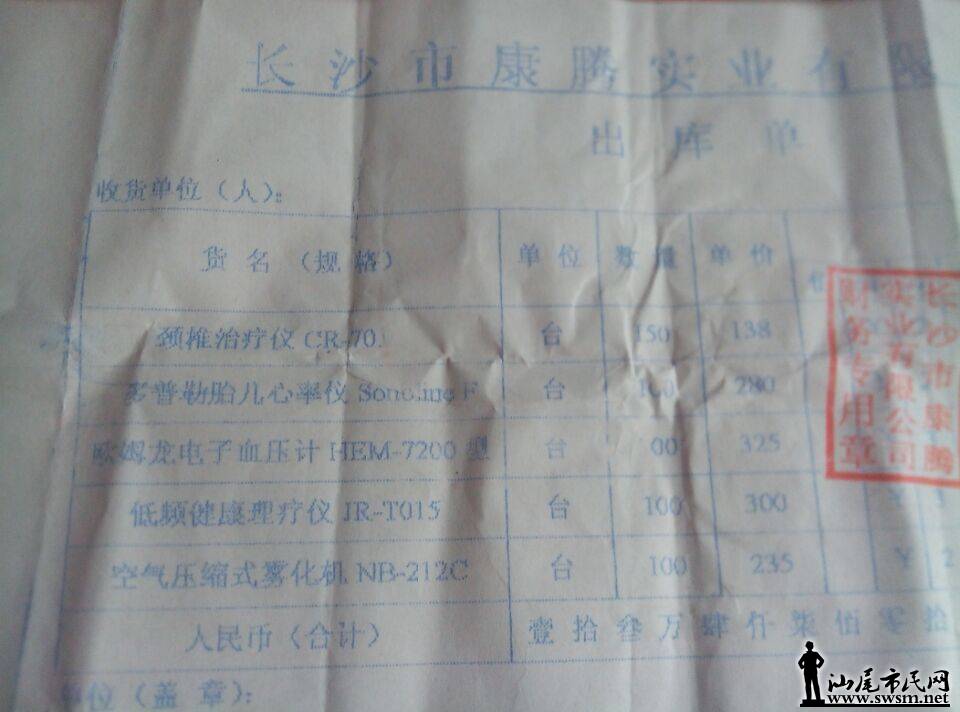 长沙市康腾实业有限
出库单
收货单位（人）：
货名（规格） 单位 数量 单价
颈椎治疗仪 CR-70 台 150 138
多普勒胎儿心率仪 台 100 280
欧姆龙电子血压计 HEM-7200 型 台 00 325
低频健康理疗仪 JR-T015 台 100 300
空气压缩式雾化机 NB-212C 台 100 235 ¥ 2
人民币（合计） 壹拾叁万肆仟柒佰零拾
单位（盖章）：
长沙市康腾
实业有限公司
财务专用章
汕尾市民网
www.swsm.net